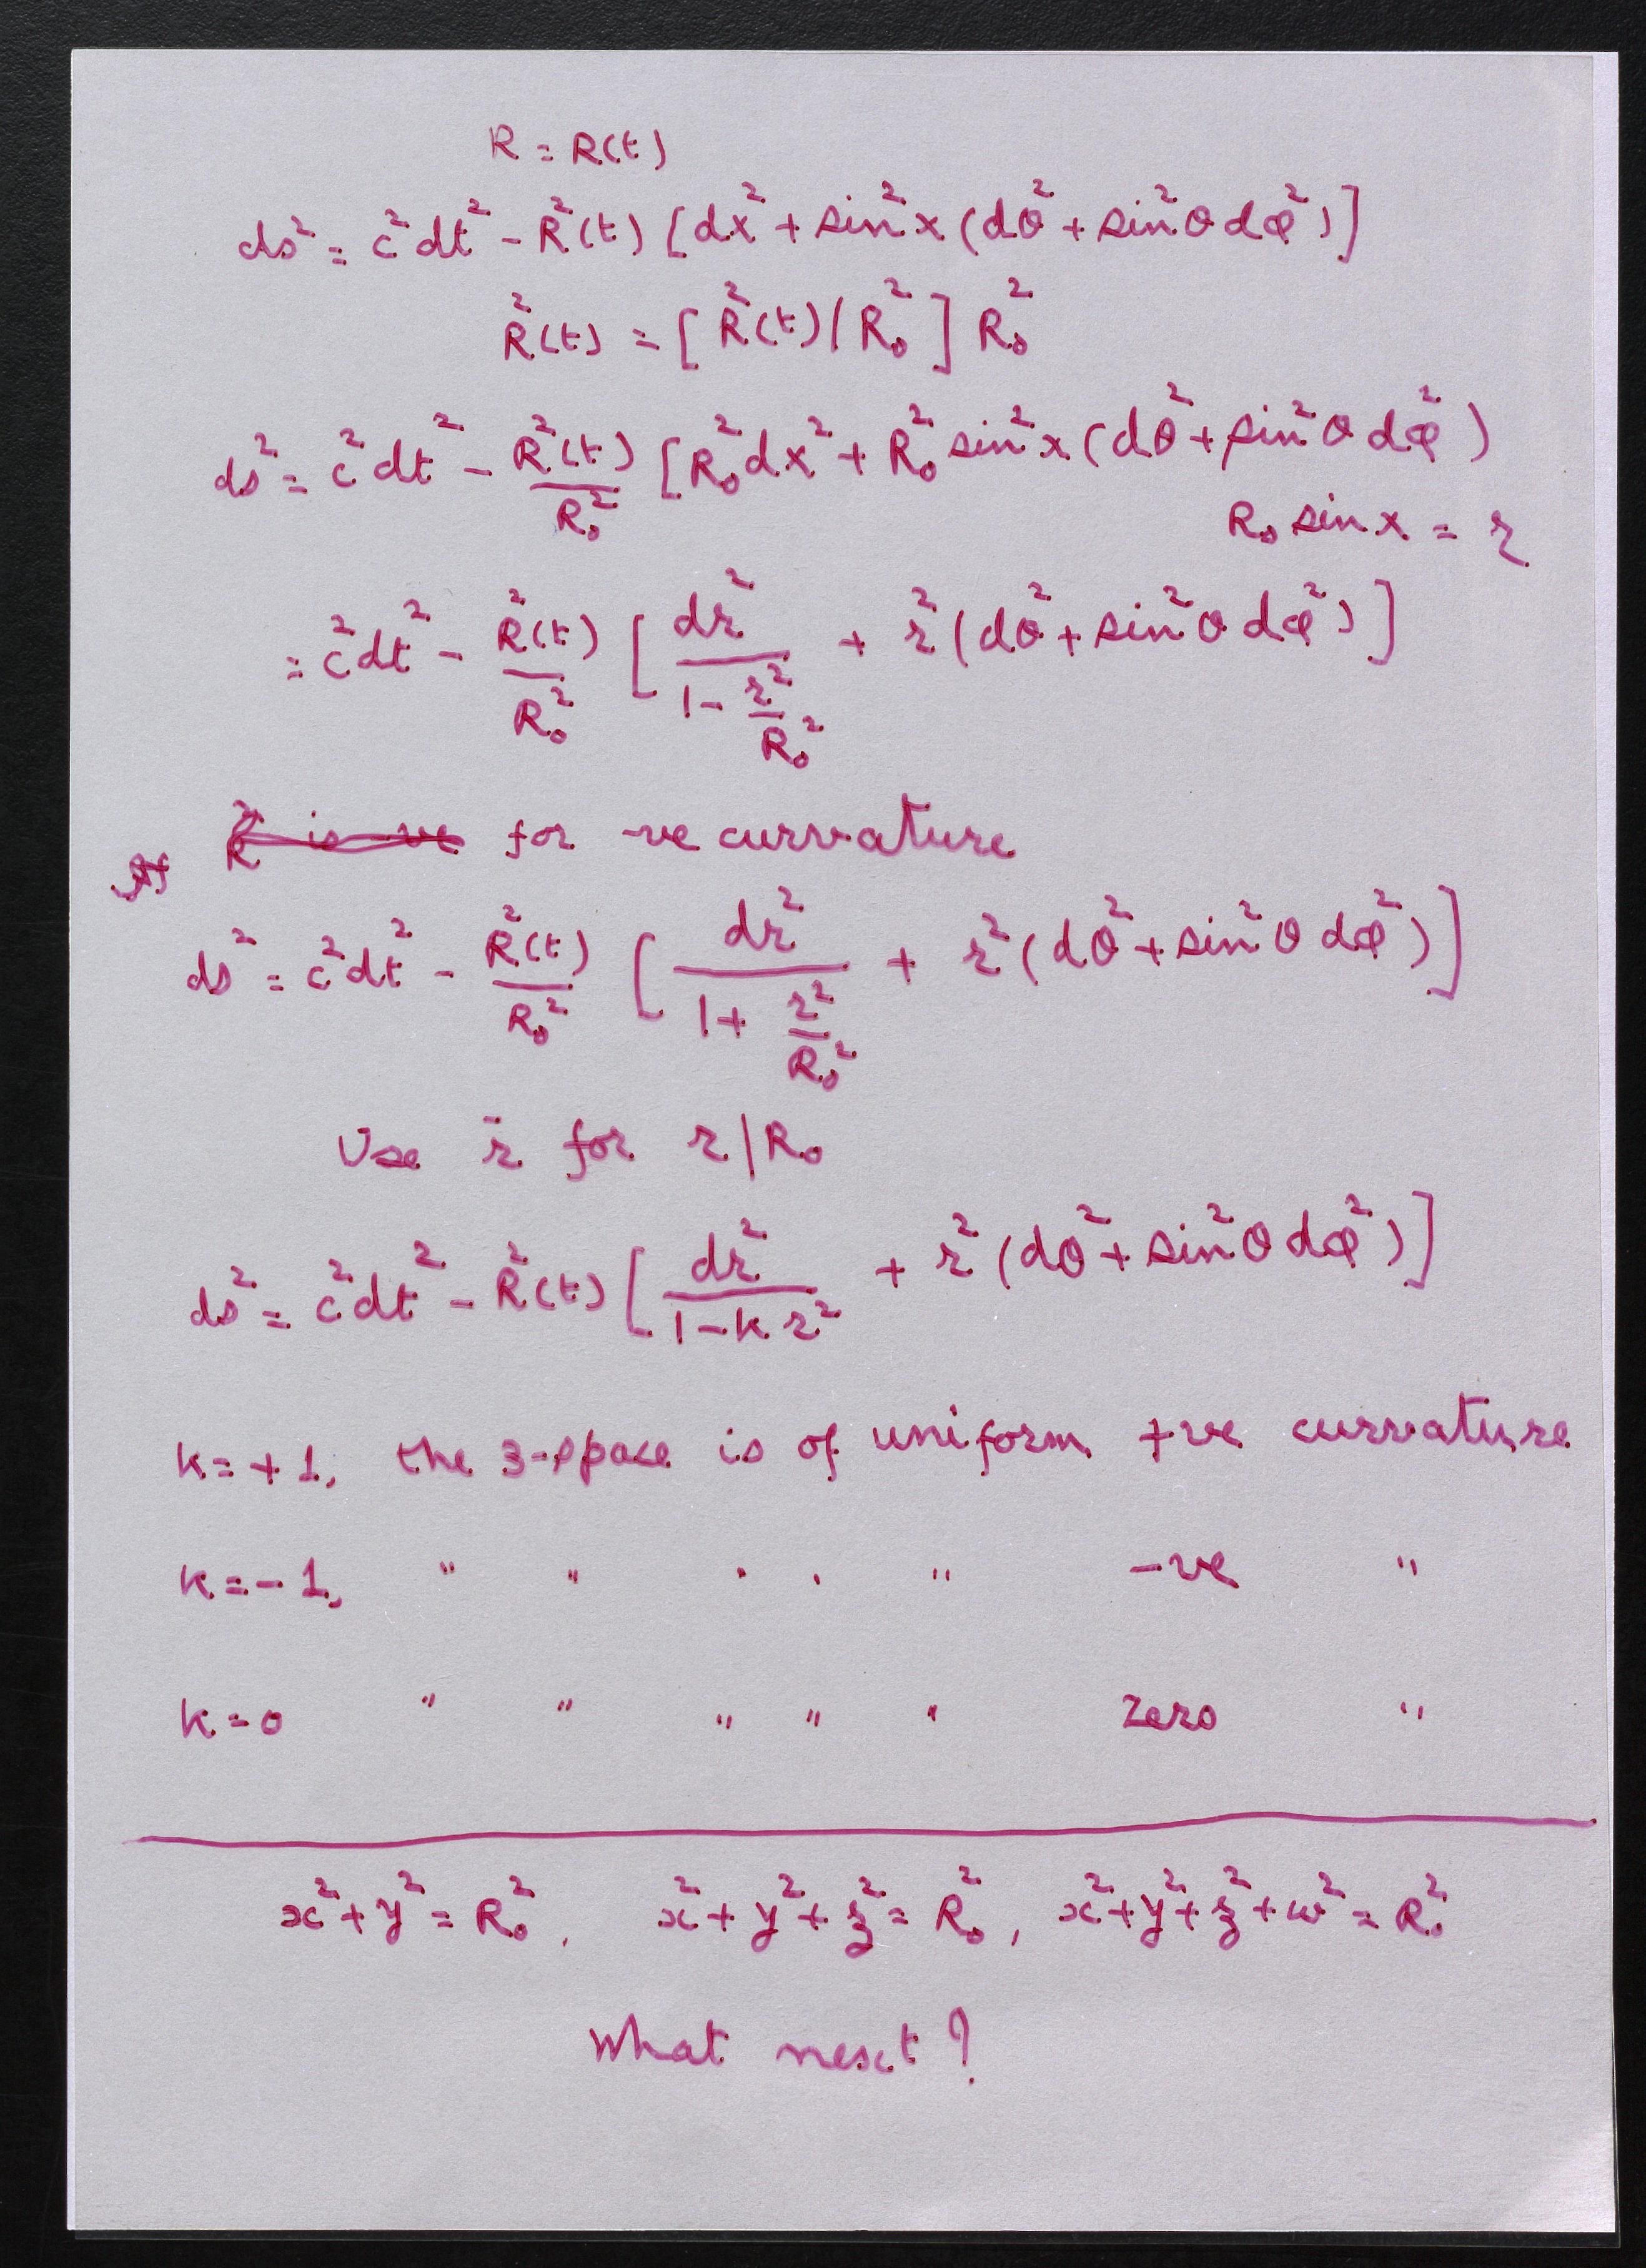 R = R(t)
ds² = c²dt² - R²(t) [dx² + sin²x (dθ² + sin²θ dφ²)]
R²(t) = [R²(t) / R₀²] R₀²
ds² = c²dt² - R²(t)/R₀² [R₀²dx² + R₀² sin²x (dθ² + sin²θ dφ²)
R₀ sin x = r
= c²dt² - R²(t)/R₀² [dr²/(1 - r²/R₀²) + r² (dθ² + sin²θ dφ²)]
R² is -ve for -ve curvature
ds² = c²dt² - R²(t)/R₀² [dr²/(1 + r²/R₀²) + r² (dθ² + sin²θ dφ²)]
Use r̄ for r/R₀
ds² = c²dt² - R²(t) [dr²/(1 - k r²) + r² (dθ² + sin²θ dφ²)]
k = +1, the 3-space is of uniform +ve curvature
k = -1, " " " " " -ve "
k = 0 " " " " " zero "
x² + y² = R₀², x² + y² + z² = R₀², x² + y² + z² + w² = R₀²
What next?